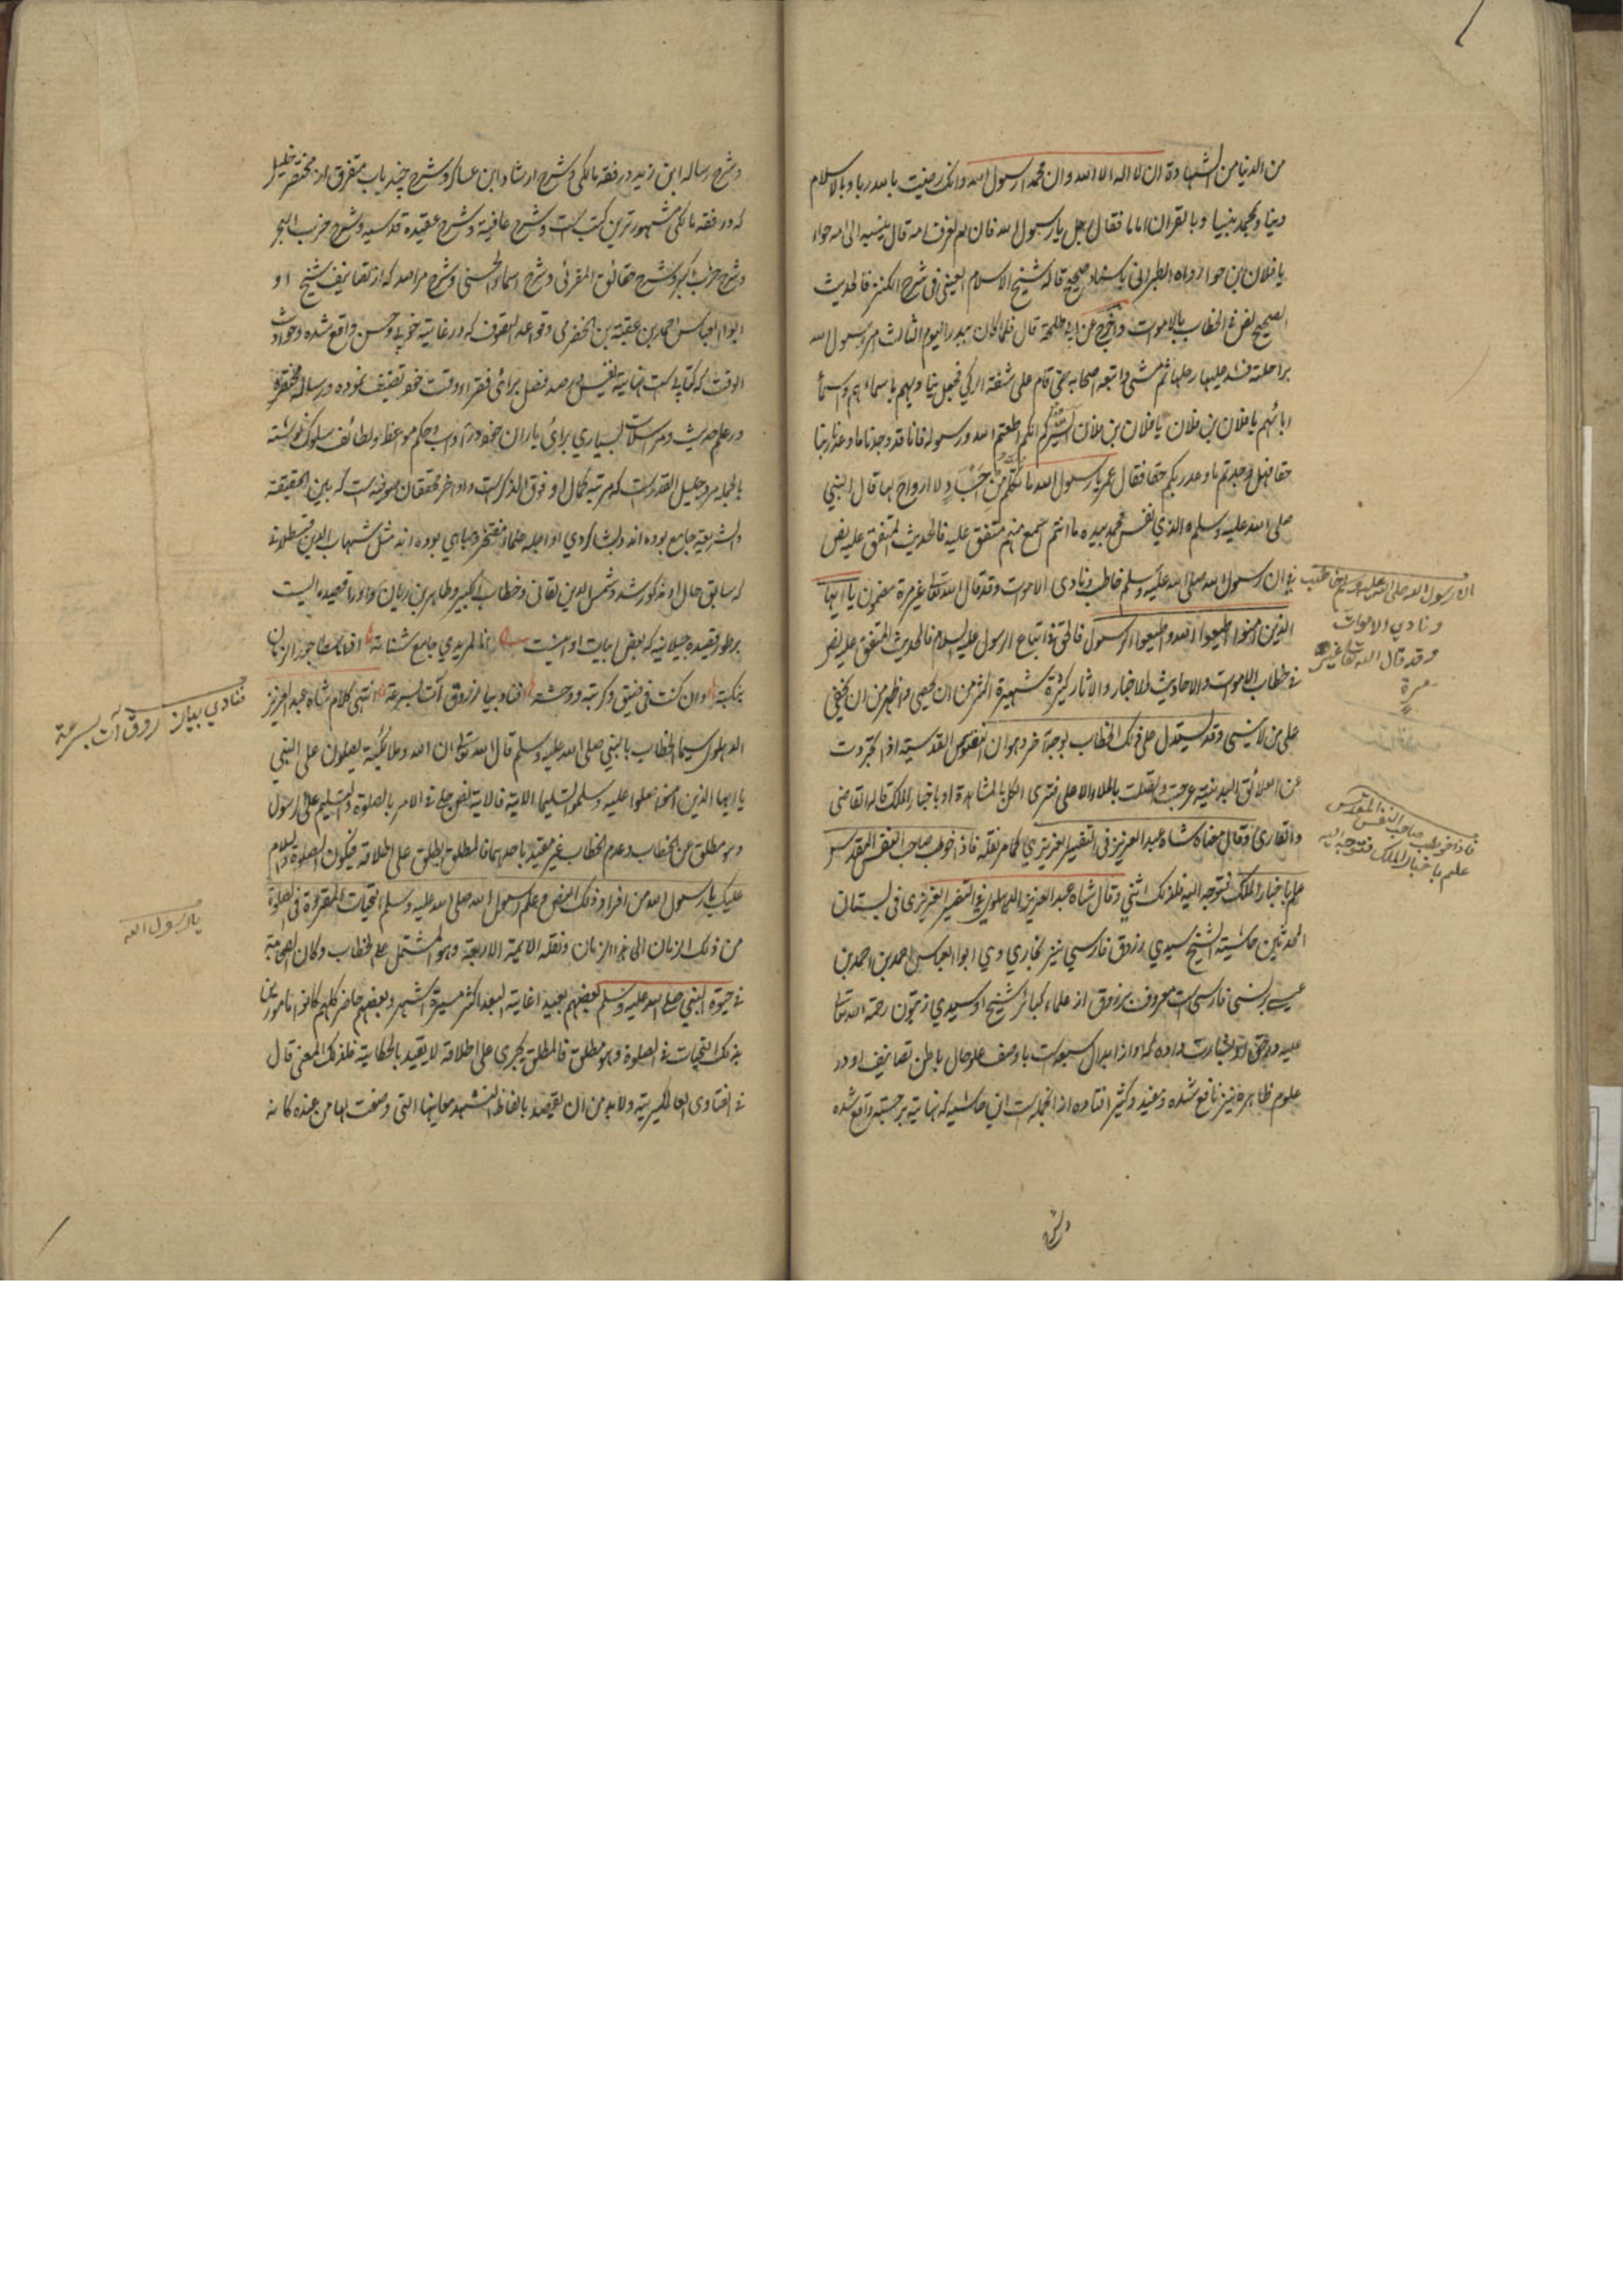 من الدنيا من الشهادة ان لا اله الا الله وان محمدا رسول الله وانك رضيت بالله ربا وبالاسلام
دينا وبمحمد نبيا وبالقران اماما فقال رجل يا رسول الله فان لم نعرف امه قال ينسبه الى امه حواء
يا فلان بن حوا رواه الطبرانى باسناد صحيح قاله شيخ الاسلام العينى فى شرح الكنز فالحديث
الصحيح نص فى الخطاب بالاموات واخرج عن ابى طلحة قال فلما كان ببدر اليوم الثالث امر رسول الله
براحلته فشد عليها رحلها ثم مشى واتبعه اصحابه حتى قام على شفة الركى فجعل يناديهم باسمائهم واسماء
ابائهم يا فلان بن فلان يا فلان بن فلان ايسركم انكم اطعتم الله ورسوله فانا قد وجدنا ما وعدنا ربنا
حقا فهل وجدتم ما وعد ربكم حقا فقال عمر يا رسول الله ما تكلم من اجساد لا ارواح لها قال النبى
صلى الله عليه وسلم والذى نفس محمد بيده ما انتم باسمع منهم متفق عليه فالحديث المتفق عليه نص
فى ان رسول الله صلى الله عليه وسلم خاطب ونادى الاموات وقد قال الله تعالى غير مرة مضمون يا ايها
الذين امنوا اطيعوا الله واطيعوا الرسول فالحق فى اتباع الرسول عليه السلام فالحديث المتفق عليه نص
فى خطاب الاموات والاحاديث والاخبار والاثار كثيرة شهيرة اكثر من ان يحصى واظهر من ان يخفى
على من لا ينسى وقد يستدل على ذلك الخطاب بوجه آخر وهو ان النفوس القدسية اذا تجردت
عن العلائق البدنية عرجت واتصلت بالملاء الاعلى فترى الكل بالمشاهدة او باخبار الملك قاله القاضى
والقارى وقال معناه شاه عبد العزيز فى التفسير العزيزى كما مر نقله فاذا خوطب صاحب النفس المقدس
علم باخبار الملك فتوجه اليه فلذلك اثنى وقال شاه عبد العزيز الدهلوى فى التفسير العزيزى فى بستان
المحدثين حاشية الشيخ سيدى زروق فارسى بر بخارى وى ابو العباس احمد بن احمد بن
عيسى برنسى فارسى است معروف بزروق از علماء كبائر شيخ او سيدى زيتون رحمة الله تعالى
عليه در حق او بشارت داده كه او از ابدال سبعه است با وصف علو حال باطن تصانيف او در
علوم ظاهره نيز نافع شده ومفيد وكثير افتاده از انجمله است اين حاشيه كه نهايت برجسته واقع شده
وشرح
ان رسول الله صلى الله عليه وسلم خاطب
ونادى الاموات
وقد قال الله تعالى غير
مرة
فاذا خوطب صاحب النفس المقدس
علم باخبار الملك فتوجه اليه
وشرح رساله ابن زيد در فقه مالكى وشرح ارشاد ابن عساكر وشرح چند باب متفرق از مختصر خليل
كه در فقه مالكى مشهور ترين كتب است وشرح عافية وشرح عقيده قدسيه وشرح حزب البحر
وشرح حزب كبير وشرح حقائق المقرئى وشرح اسماء الحسنى وشرح مراصد كه از تصانيف شيخ او
ابو العباس احمد بن عقبة بن الحضرمى وقواعد التصوف كه در غايت خوبى وحسن واقع شده وحوادث
الوقت كه كتابى است نهايت نفيس در صد فصل برائى فقراء وقت خود تصنيف نموده ورساله مختصره
در علم حديث ومراسلات بسيارى برائى ياران خود در آداب وحكم ومواعظ ولطائف سلوك نوشته
بالجمله مرد جليل القدر است كه مرتبه كمال او فوق الذكر است واو آخر محققان صوفيه است كه بين الحقيقة
والشريعة جامع بوده اند وبشاگردى او اجله علماء مفتخر ومباهى بوده اند مثل شهاب الدين قسطلانى
كه سابق حال او مذكور شد وشمس الدين لقانى وخطاب الكبير وطاهر بن زيان واو را قصيده ايست
بر طور قصيده جيلانيه كه بعض ابيات او اينست انا لمريدى جامع شتاته اذا ما سطا جور الزمان
بنكبة وان كنت فى ضيق وكرب ووحشة فناد بيا زروق آت بسرعة انتهى كلام شاه عبد العزيز
الدهلوى سيما الخطاب بالنبى صلى الله عليه وسلم قال الله تعالى ان الله وملائكته يصلون على النبى
يا ايها الذين امنوا صلوا عليه وسلموا تسليما الاية فالاية نص جلى فى الامر بالصلوة والتسليم على الرسول
وهو مطلق عن الخطاب وعدم الخطاب غير مقيد باحدهما فالمطلق يطلق على اطلاقه فيكون الصلوة والسلام
عليك يا رسول الله من افراد ذلك النص وعلم رسول الله صلى الله عليه وسلم التحيات المقروة فى الصلوة
من ذلك الزمان الى هذا الزمان ونقله الائمة الاربعة وهو المشتمل على الخطاب وكان الصحابة
فى حيوة النبى صلى الله عليه وسلم بعضهم بعيد اغاية البعد اكثر مسيرة اشهر وبعضهم حاضر كلهم كانوا مامورين
بذلك التحيات فى الصلوة وهو مطلق فالمطلق يجرى على اطلاقه لا يقيد بالحكاية فلذلك المعنى قال
فى الفتاوى العالمگيرية ولا بد من ان يقصد بالفاظ التشهد معانيها التى وضعت لها من عنده كانه
فنادى بيا زروق آت بسرعة
يا رسول الله